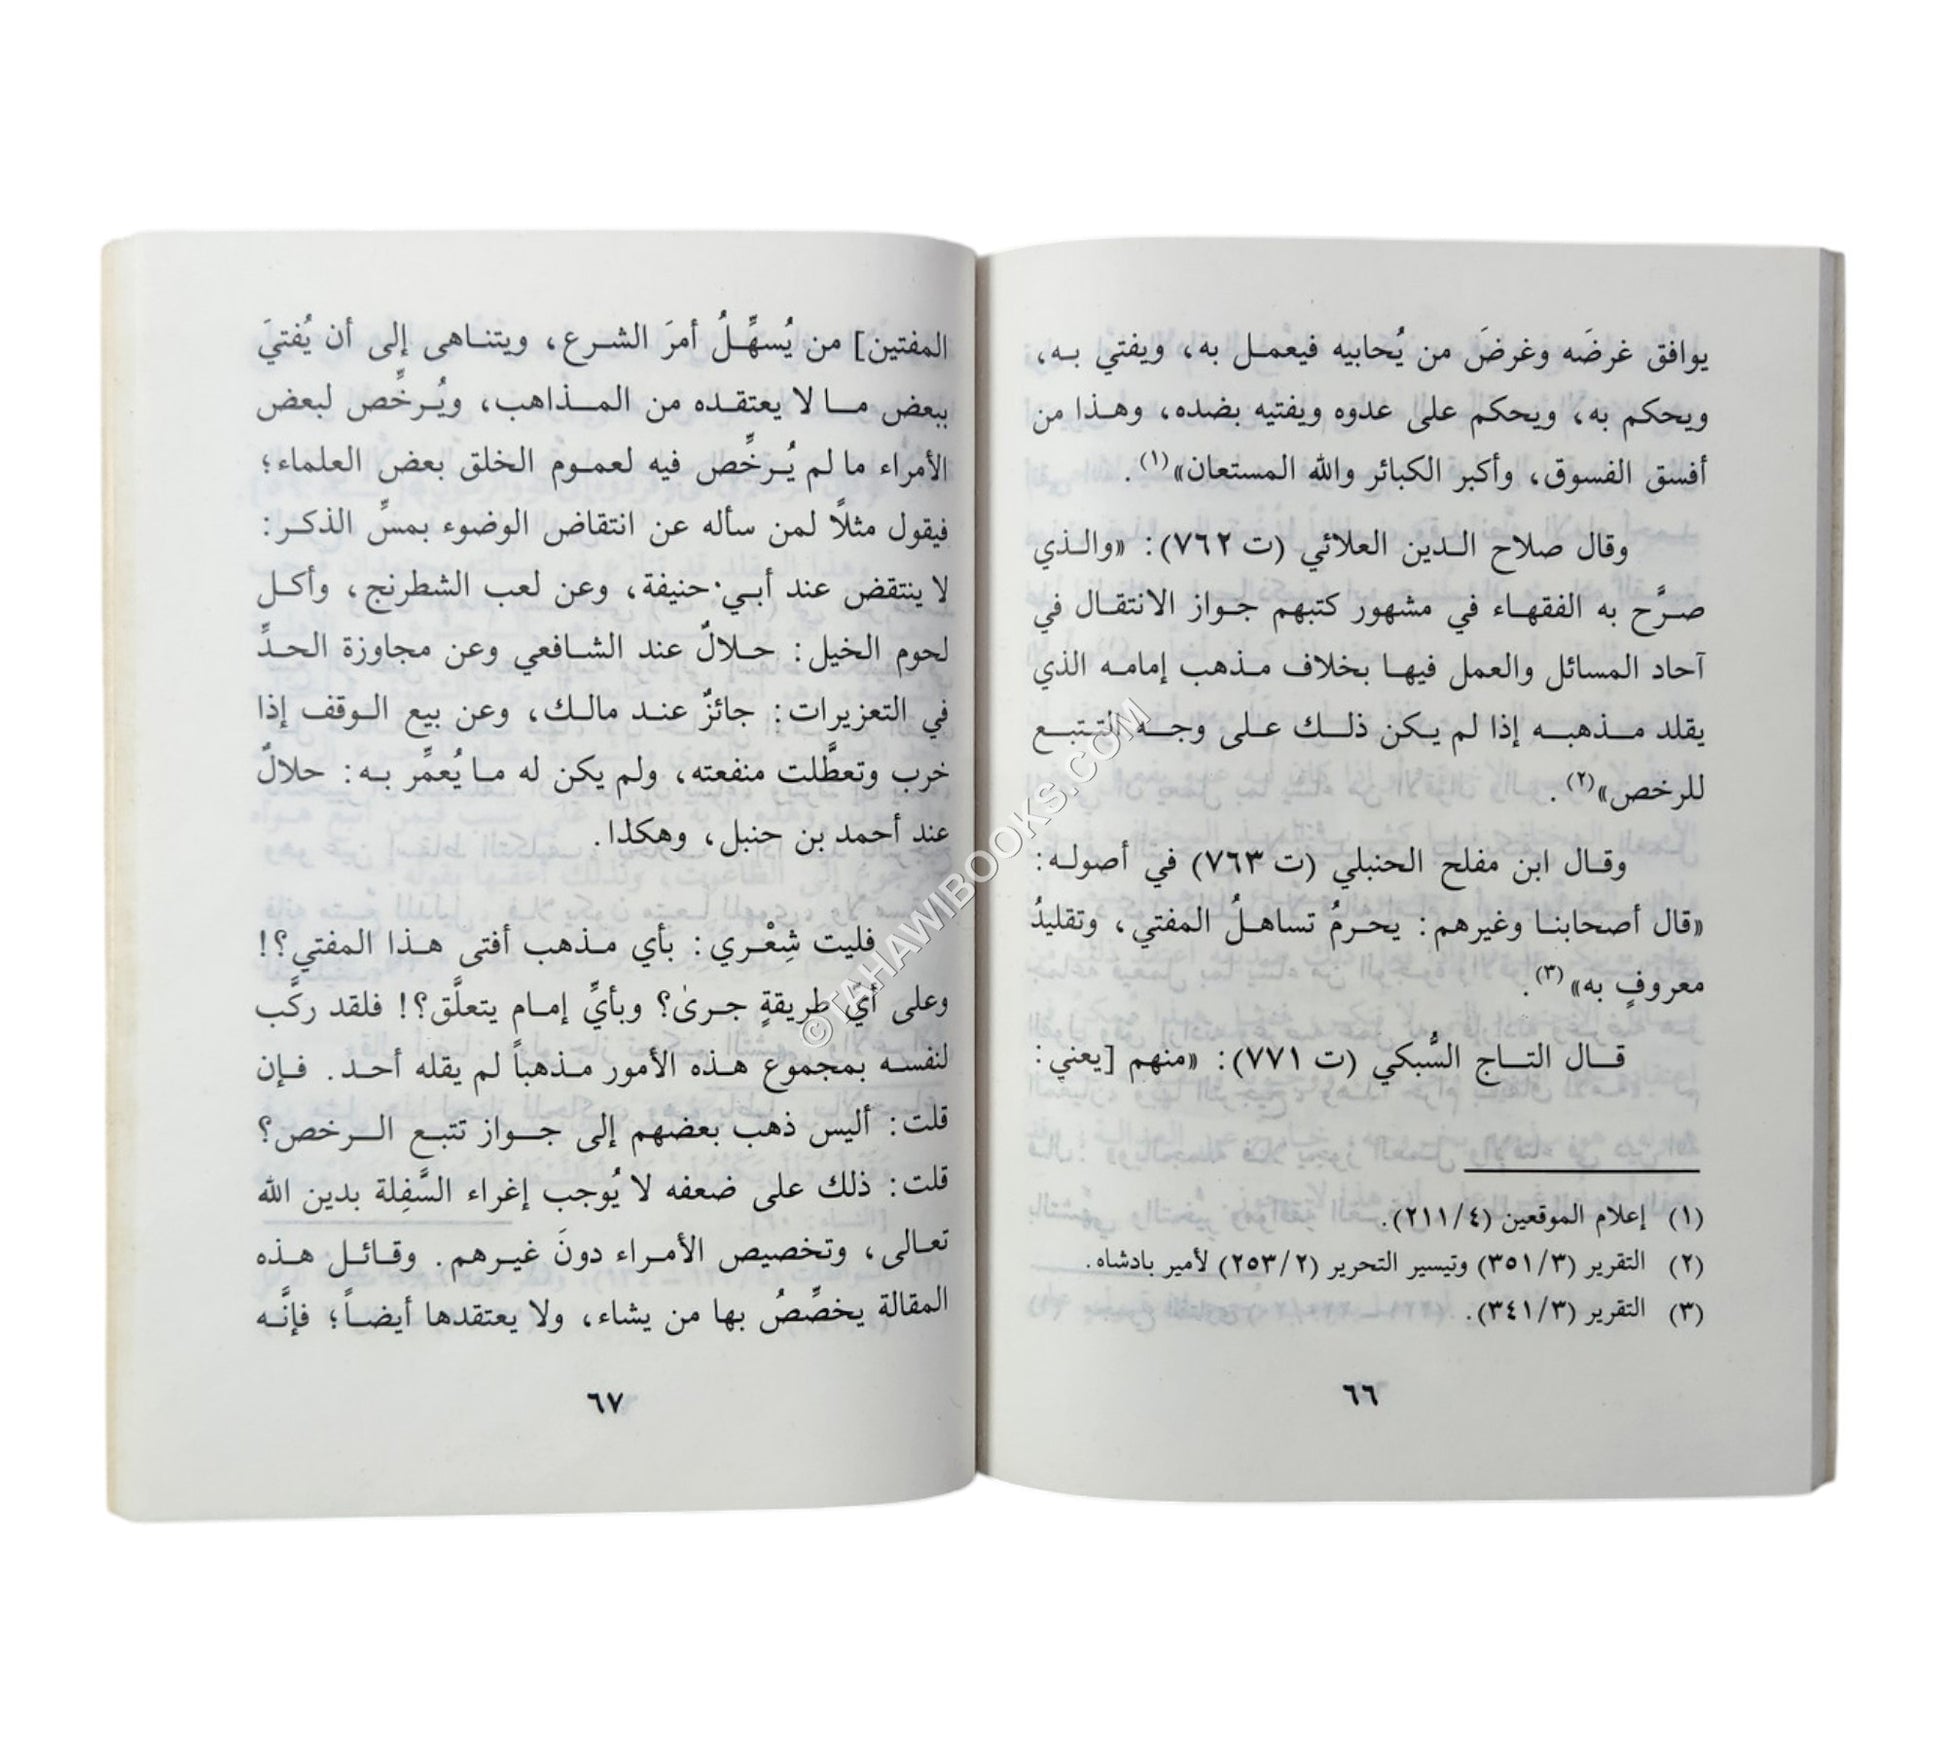 يوافق غرضَه وغرضَ من يُحابيه فيعمـل به، ويفتي بـه،
ويحكم به، ويحكم على عدوه ويفتيه بضده، وهـذا من
أفسق الفسوق، وأكبر الكبائر والله المستعان»(١).
وقال صلاح الـدين العلائي (ت ٧٦٢): «والـذي
صـرَّح به الفقهـاء في مشهور كتبهم جـواز الانتقـال في
آحاد المسائل والعمل فيهـا بخلاف مـذهب إمامـه الذي
يقلد مـذهبـه إذا لم يكن ذلـك علـى وجـه التـتبـع
للرخص»(٢).
وقـال ابن مفلح الحنبلي (ت ٧٦٣) في أصولـه:
«قال أصحابنـا وغيرهم: يحرمُ تساهـلُ المفتي، وتقليدُ
معروفٍ به»(٣).
قـال التـاج السُّبكي (ت ٧٧١): «منهم [يعني:
(١) إعلام الموقعين (٢١١/٤).
(٢) التقرير (٣٥١/٣) وتيسير التحرير (٢٥٣/٢) لأمير بادشاه.
(٣) التقرير (٣٤١/٣).
٦٦
المفتين] من يُسهِّـلُ أمرَ الشـرع، ويتنـاهى إلى أن يُفتيَ
ببعض مـا لا يعتقـده من المـذاهب، ويُـرخِّص لبعض
الأمراء ما لم يُـرخِّص فيه لعمـوم الخلق بعض العلماء؛
فيقول مثلاً لمن سأله عن انتقاض الوضوء بمسِّ الذكـر:
لا ينتقض عند أبي حنيفة، وعن لعب الشطرنج، وأكـل
لحوم الخيل: حـلالٌ عند الشـافعي وعن مجاوزة الحـدِّ
في التعزيرات: جائزٌ عنـد مالـك، وعن بيع الـوقف إذا
خرب وتعطَّلت منفعته، ولم يكن له مـا يُعمِّر بـه: حلالٌ
عند أحمد بن حنبل، وهكذا.
فليت شِعْـري: بأي مـذهب أفتى هـذا المفتي؟!
وعلى أيِّ طريقةٍ جـرىٰ؟ وبأيِّ إمـام يتعلَّق؟! فلقد ركَّب
لنفسـه بمجموع هـذه الأمور مـذهبـاً لم يقله أحـد. فـإن
قلت: أليس ذهب بعضهم إلى جـواز تتبـع الـرخص؟
قلت: ذلك على ضعفه لا يُوجب إغراء السَّفِلة بدين الله
تعـالى، وتخصيص الأمـراء دونَ غيـرهم. وقـائـل هـذه
المقالة يخصِّصُ بها من يشاء، ولا يعتقدها أيضـاً؛ فإنَّـه
٦٧
©TAHAWIBOOKS.COM